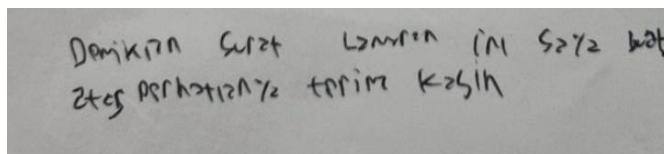 Demikian surat lamaran ini saya buat
atas perhatiannya terima kasih